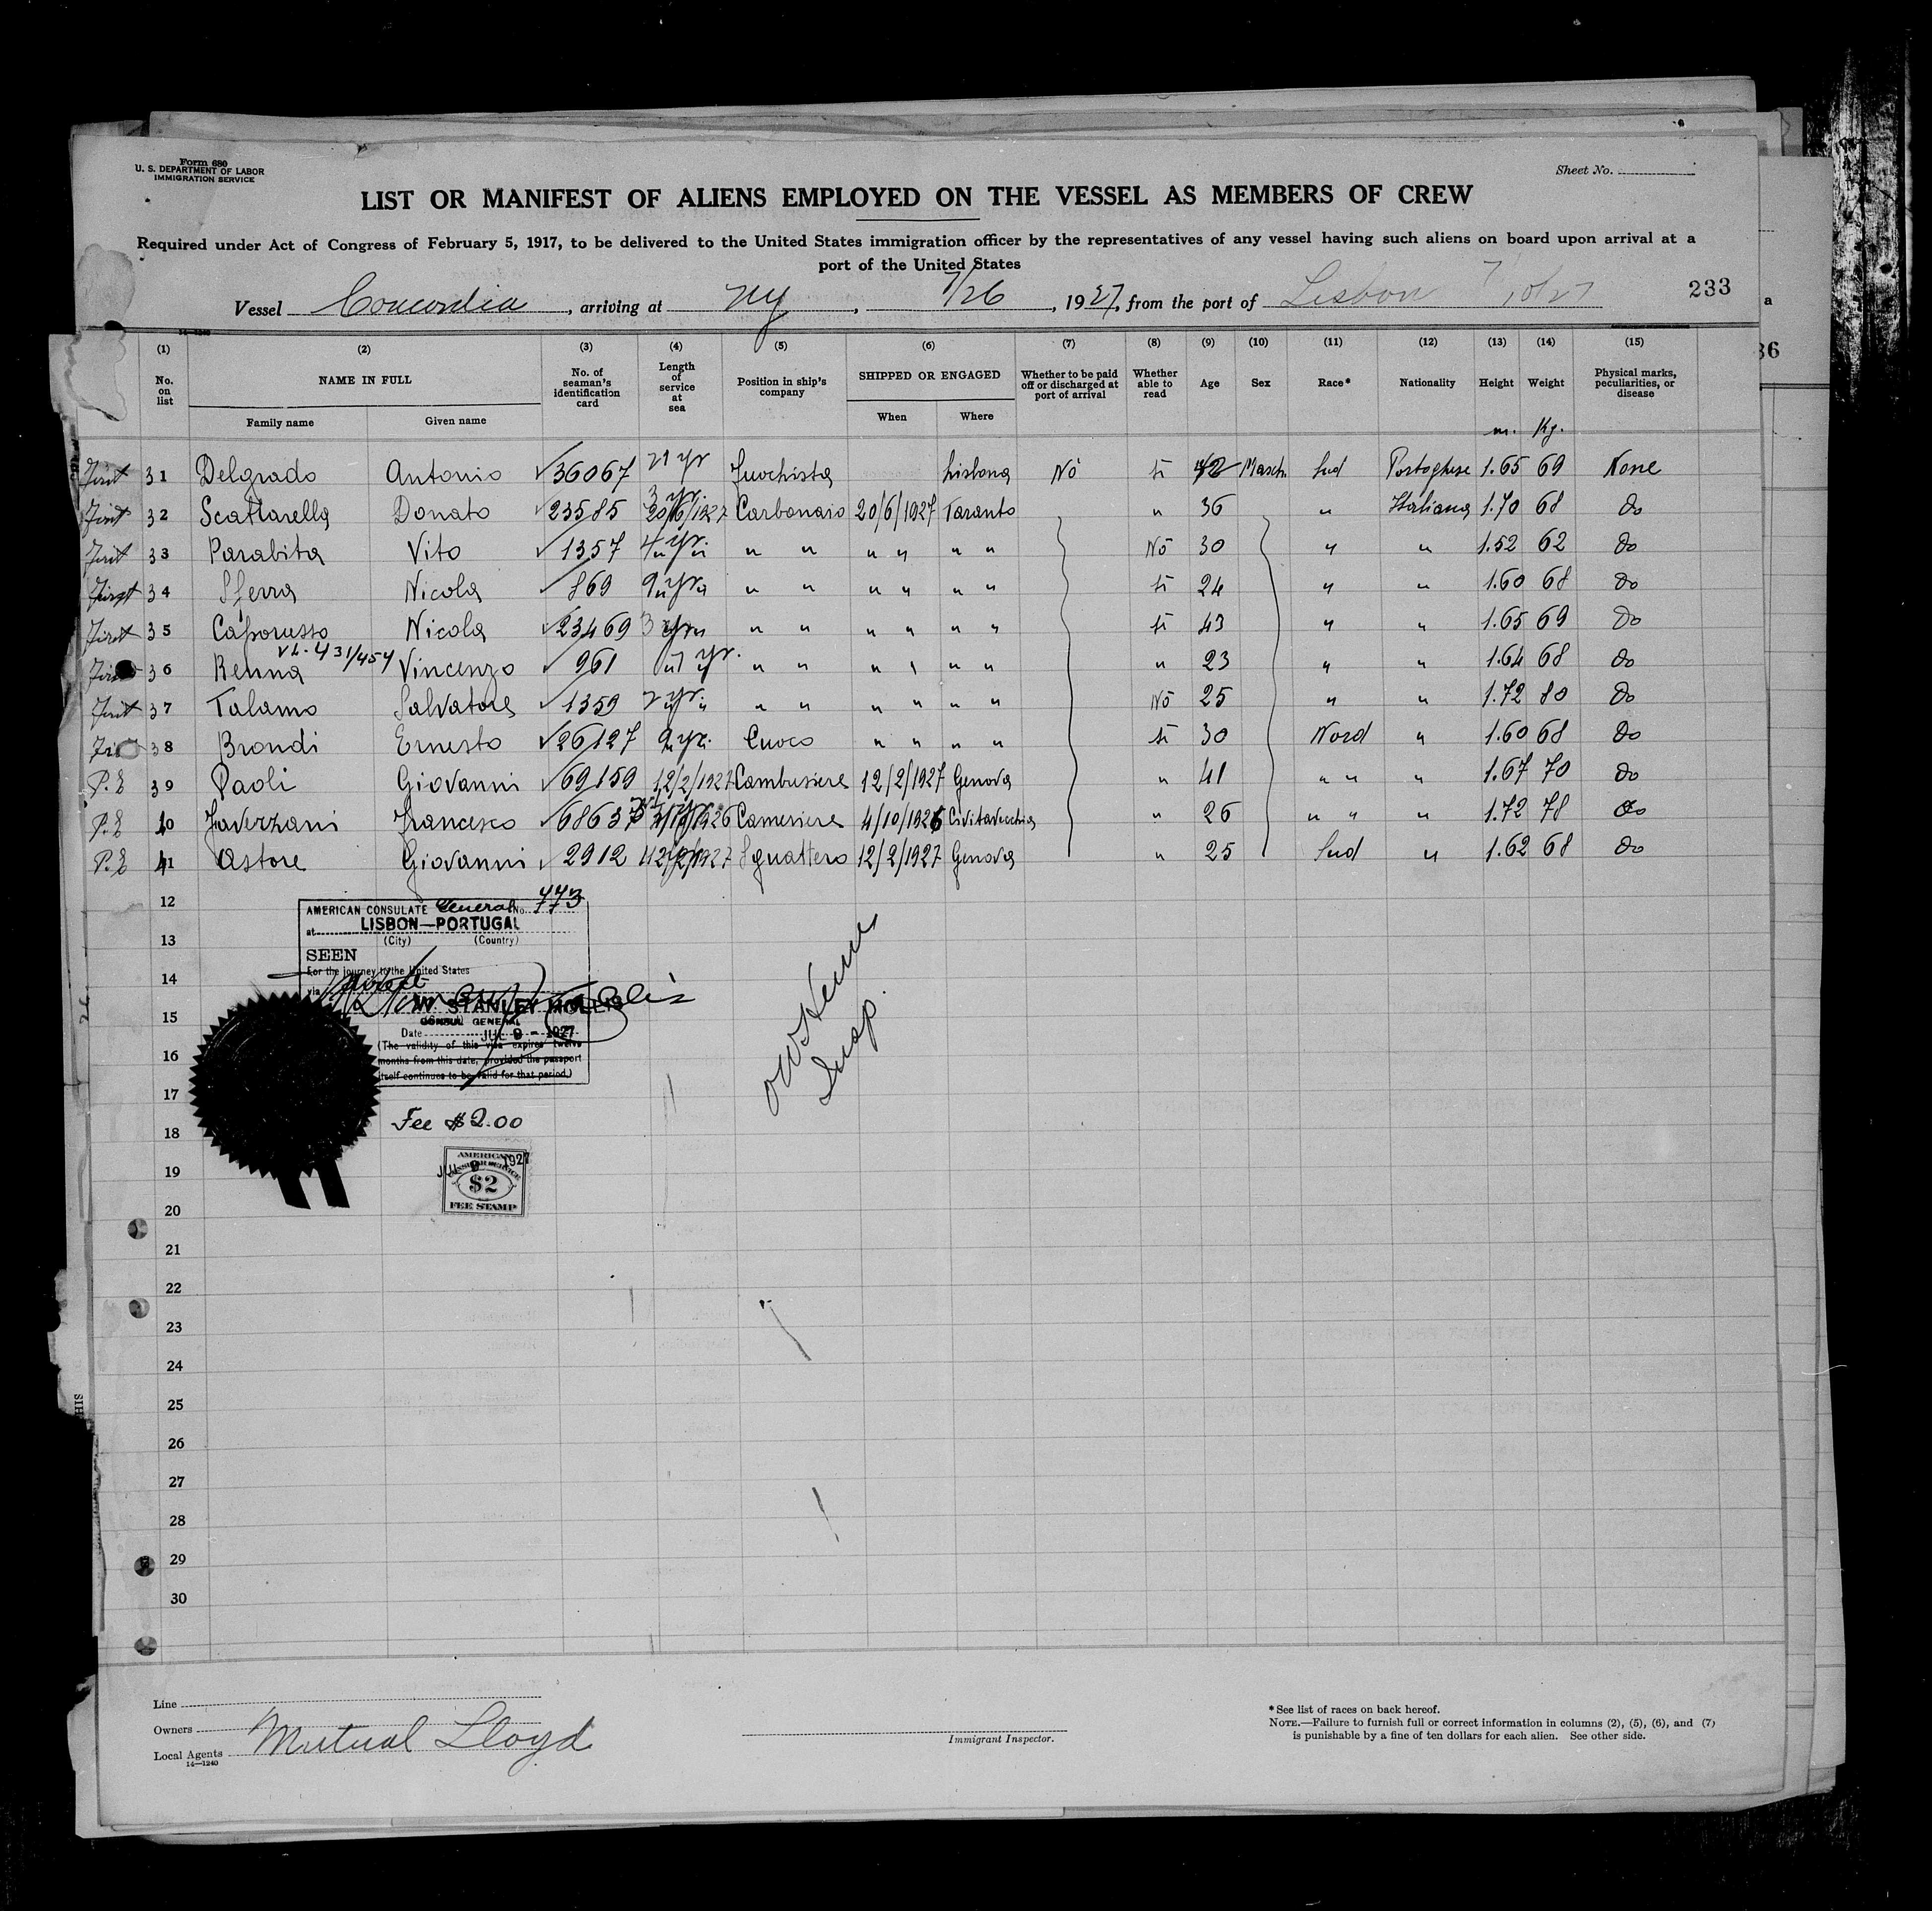 Form 680
U. S. DEPARTMENT OF LABOR
IMMIGRATION SERVICE
Sheet No.
LIST OR MANIFEST OF ALIENS EMPLOYED ON THE VESSEL AS MEMBERS OF CREW
Required under Act of Congress of February 5, 1917, to be delivered to the United States immigration officer by the representatives of any vessel having such aliens on board upon arrival at a
port of the United States
Vessel Concordia, arriving at NY, 7/26, 1927, from the port of Lisbon 7/10/27 233
a
14—1240
36
(1) (2) (3) (4) (5) (6) (7) (8) (9) (10) (11) (12) (13) (14) (15)
No. on list NAME IN FULL No. of seaman's identification card Length of service at sea Position in ship's company SHIPPED OR ENGAGED Whether to be paid off or discharged at port of arrival Whether able to read Age Sex Race* Nationality Height Weight Physical marks, peculiarities, or disease
Family name Given name When Where m. Kg.
First 31 Delgrado Antonio 36067 21 yr Fuochista Lisbona No si 42 Masch. Sud Portoghese 1.65 69 None
First 32 Scattarella Donato 23585 3 yr. 20/6/1927 Carbonaro 20/6/1927 Taranto " 36 " Italiana 1.70 68 do
First 33 Parabita Vito 1357 4 yr " " " " " " No 30 " " 1.52 62 do
First 34 Sferra Nicola 869 9 yr " " " " " " si 24 " " 1.60 68 do
First 35 Caporusso Nicola 23469 3 yr " " " " " " si 43 " " 1.65 69 do
431/454
36 Renna Vincenzo 961 yr. " " " " " " " 23 " " 1.64 68 do
First 37 Talamo Salvatore 1359 2 yr " " " " " " No 25 " " 1.72 80 do
38 Brondi Ernesto 26127 9 yr. Cuoco " " " " si 30 Nord " 1.60 68 do
P.E 39 Paoli Giovanni 69159 12/2/1927 Cambusiere 12/2/1927 Genova " 41 " " " 1.67 70 do
P.E 40 Javerzani Francesco 68637 Cameriere 4/10/1926 Civitavecchia " 26 " " " 1.72 78 do
P.E 41 Astore Giovanni 2912 Sguattero 12/2/1927 Genova " 25 Sud " 1.62 68 do
12
AMERICAN CONSULATE General No. 773
at LISBON—PORTUGAL
(City) (Country)
13
SEEN
For the journey to the United States
14
via direct
W. STANLEY HOLLIS
15
CONSUL GENERAL
Date JUL 9 - 1927
(The validity of this visa expires twelve
16
months from this date, provided the passport
itself continues to be valid for that period.)
Insp.
17
Fee $2.00
18
19
AMERICAN
JUL 9 1927
$2
FEE STAMP
20
21
22
23
24
25
26
27
28
29
30
Line
Owners
Local Agents Mutual Lloyd
14—1240
Immigrant Inspector.
*See list of races on back hereof.
NOTE.—Failure to furnish full or correct information in columns (2), (5), (6), and (7)
is punishable by a fine of ten dollars for each alien. See other side.